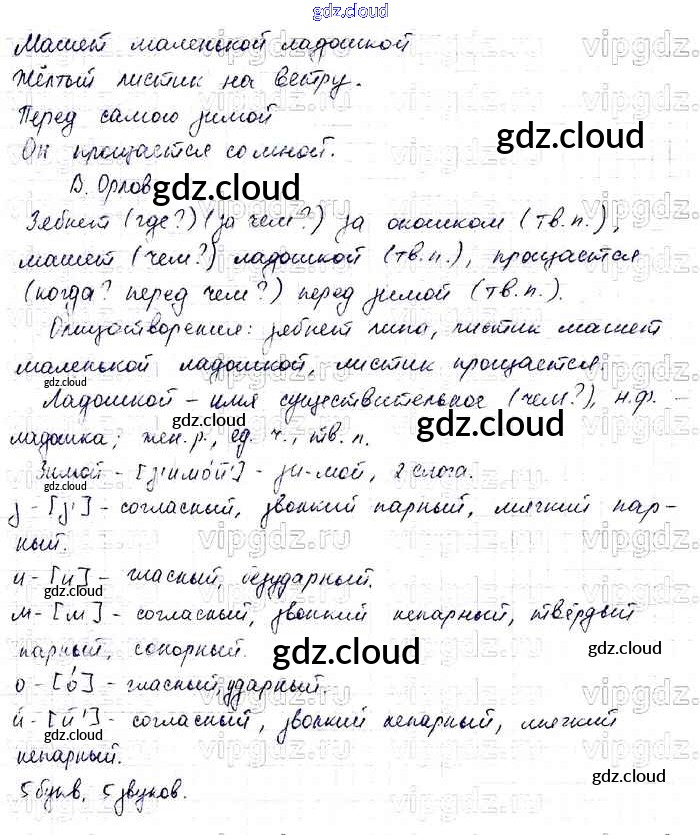 gdz.cloud
Машет маленькой ладошкой
Жёлтый листик на ветру.
Перед самою зимой
gdz.cloud
Он прощается со мной.
В. Орлов
gdz.cloud
Зябнет (где?) (за чем?) за окошком (тв.п.),
машет (чем?) ладошкой (тв.п.), прощается
(когда? перед чем?) перед зимой (тв.п.).
Олицетворения: зябнет липа, листик машет
маленькой ладошкой, листик прощается.
gdz.cloud
Ладошкой – имя существительное (чем?), н.ф. –
gdz.cloud
gdz.cloud
ладошка; жен.р., ед.ч., тв.п.
Зимой – [з'имо́й'] – зи-мой, 2 слога.
gdz.cloud
з – [з'] – согласный, звонкий парный, мягкий пар-
ный.
и – [и] – гласный, безударный.
gdz.cloud
м – [м] – согласный, звонкий непарный, твёрдый
парный, сонорный.
gdz.cloud
gdz.cloud
о – [о́] – гласный, ударный.
й – [й'] – согласный, звонкий непарный, мягкий
непарный.
gdz.cloud
5 букв, 5 звуков.
gdz.cloud
vipgdz.ru